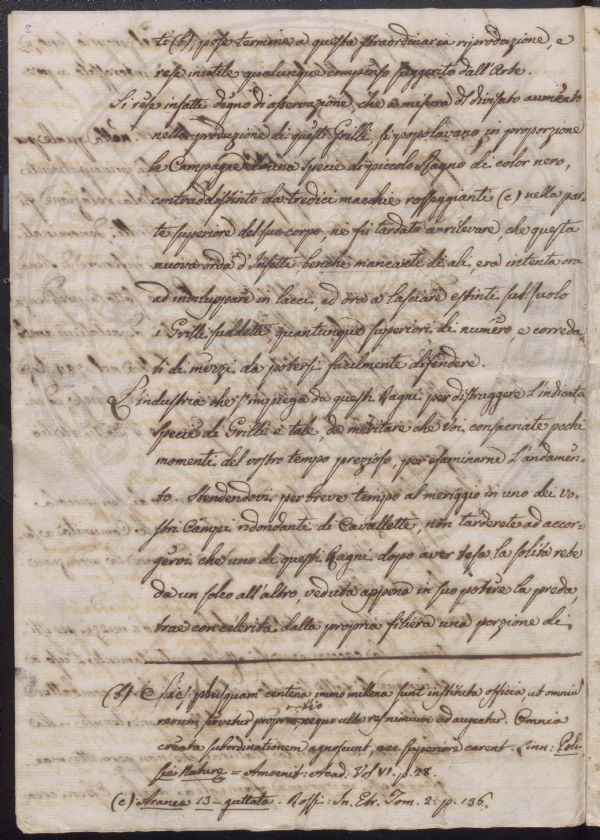 ti (b), pose termine a questa straordinaria riproduzione, e
rese inutile qualunque compenso suggerito dall'Arte.
Si rese infatti degno di osservazione, che a misura del divisato aumento
nella produzione di questi Grilli, si popolavano in proporzione
le Campagne con una specie di piccolo Ragno di color nero,
contraddistinto da tredici macchie rosseggianti (c) nella par-
te superiore del suo corpo, nè fù tardato a rilevare, che questa
nuova orda d'Insetti benchè mancante di ali, era intenta ora
ad inviluppare in lacci, ed ora a lasciare estinti sul suolo
i Grilli suddetti, quantunque superiori di numero, e correda-
ti di mezzi da potersi facilmente difendere.
L'industria che s'impiega da questi Ragni per distruggere l'indicata
specie di Grilli è tale, da meritare che Voi consacriate pochi
momenti del vostro tempo prezioso, per esaminarne l'andamen-
to. Stendendovi per breve tempo al meriggio in uno dei Vo-
stri Campi ridondante di Cavallette, non tarderete ad accor-
gervi che uno di questi Ragni dopo aver tesa la solita rete
da un solco all'altro, veduta appena in suo potere la preda,
trae con celerità dalla propria filiera una porzione di
(b) Sic plusquam centena immo millena sunt instituta officia ut omniu
rerum servetur proportio neque ulla res nimium adaugeatur. Omnia
creata subordinationem agnoscunt, nec superiore carent. Linn: Poli-
tia Naturę = Amoenit: Acad: Vol VI. p. 28.
(c) Aranea 13-guttata. Rossi: In. Etr. Tom. 2: p. 136.